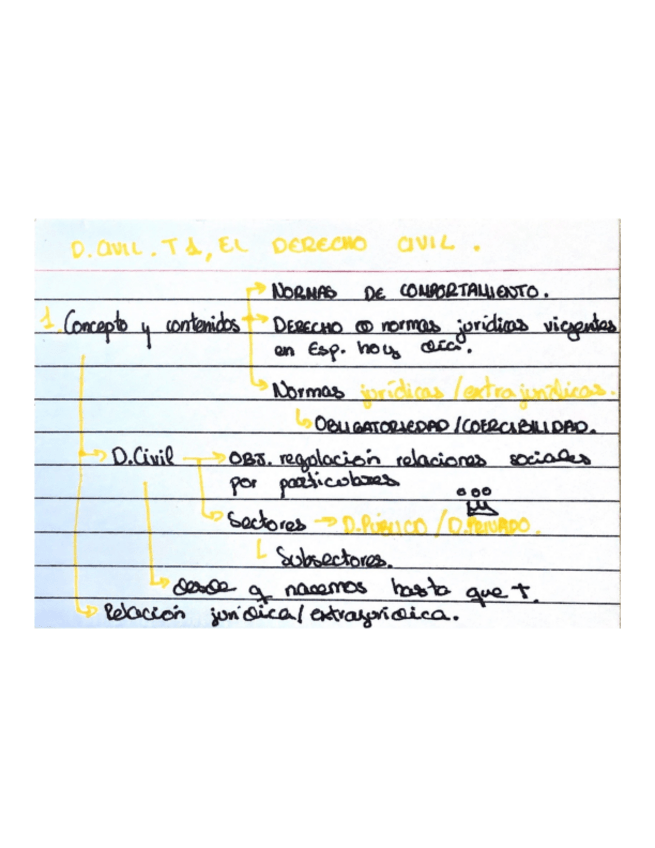 D. CIVIL. T1, EL DERECHO CIVIL.
NORMAS DE COMPORTAMIENTO.
1. Concepto y contenidos → DERECHO → normas jurídicas vigentes
en Esp. hoy día.
Normas jurídicas / extrajurídicas.
OBLIGATORIEDAD / COERCIBILIDAD.
D. Civil → OBJ. regulación relaciones sociales
por particulares
Sectores → D. PÚBLICO / D. PRIVADO.
Subsectores.
desde q nacemos hasta que †.
Relación jurídica / extrajurídica.